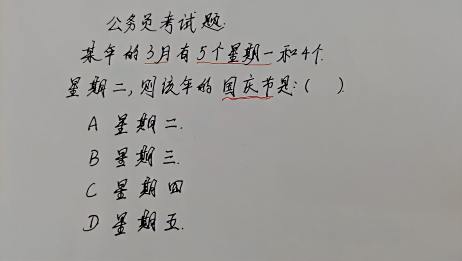 公务员考试题:
某年的3月有5个星期一和4个
星期二,则该年的国庆节是:( )
A 星期二.
B 星期三.
C 星期四
D 星期五.